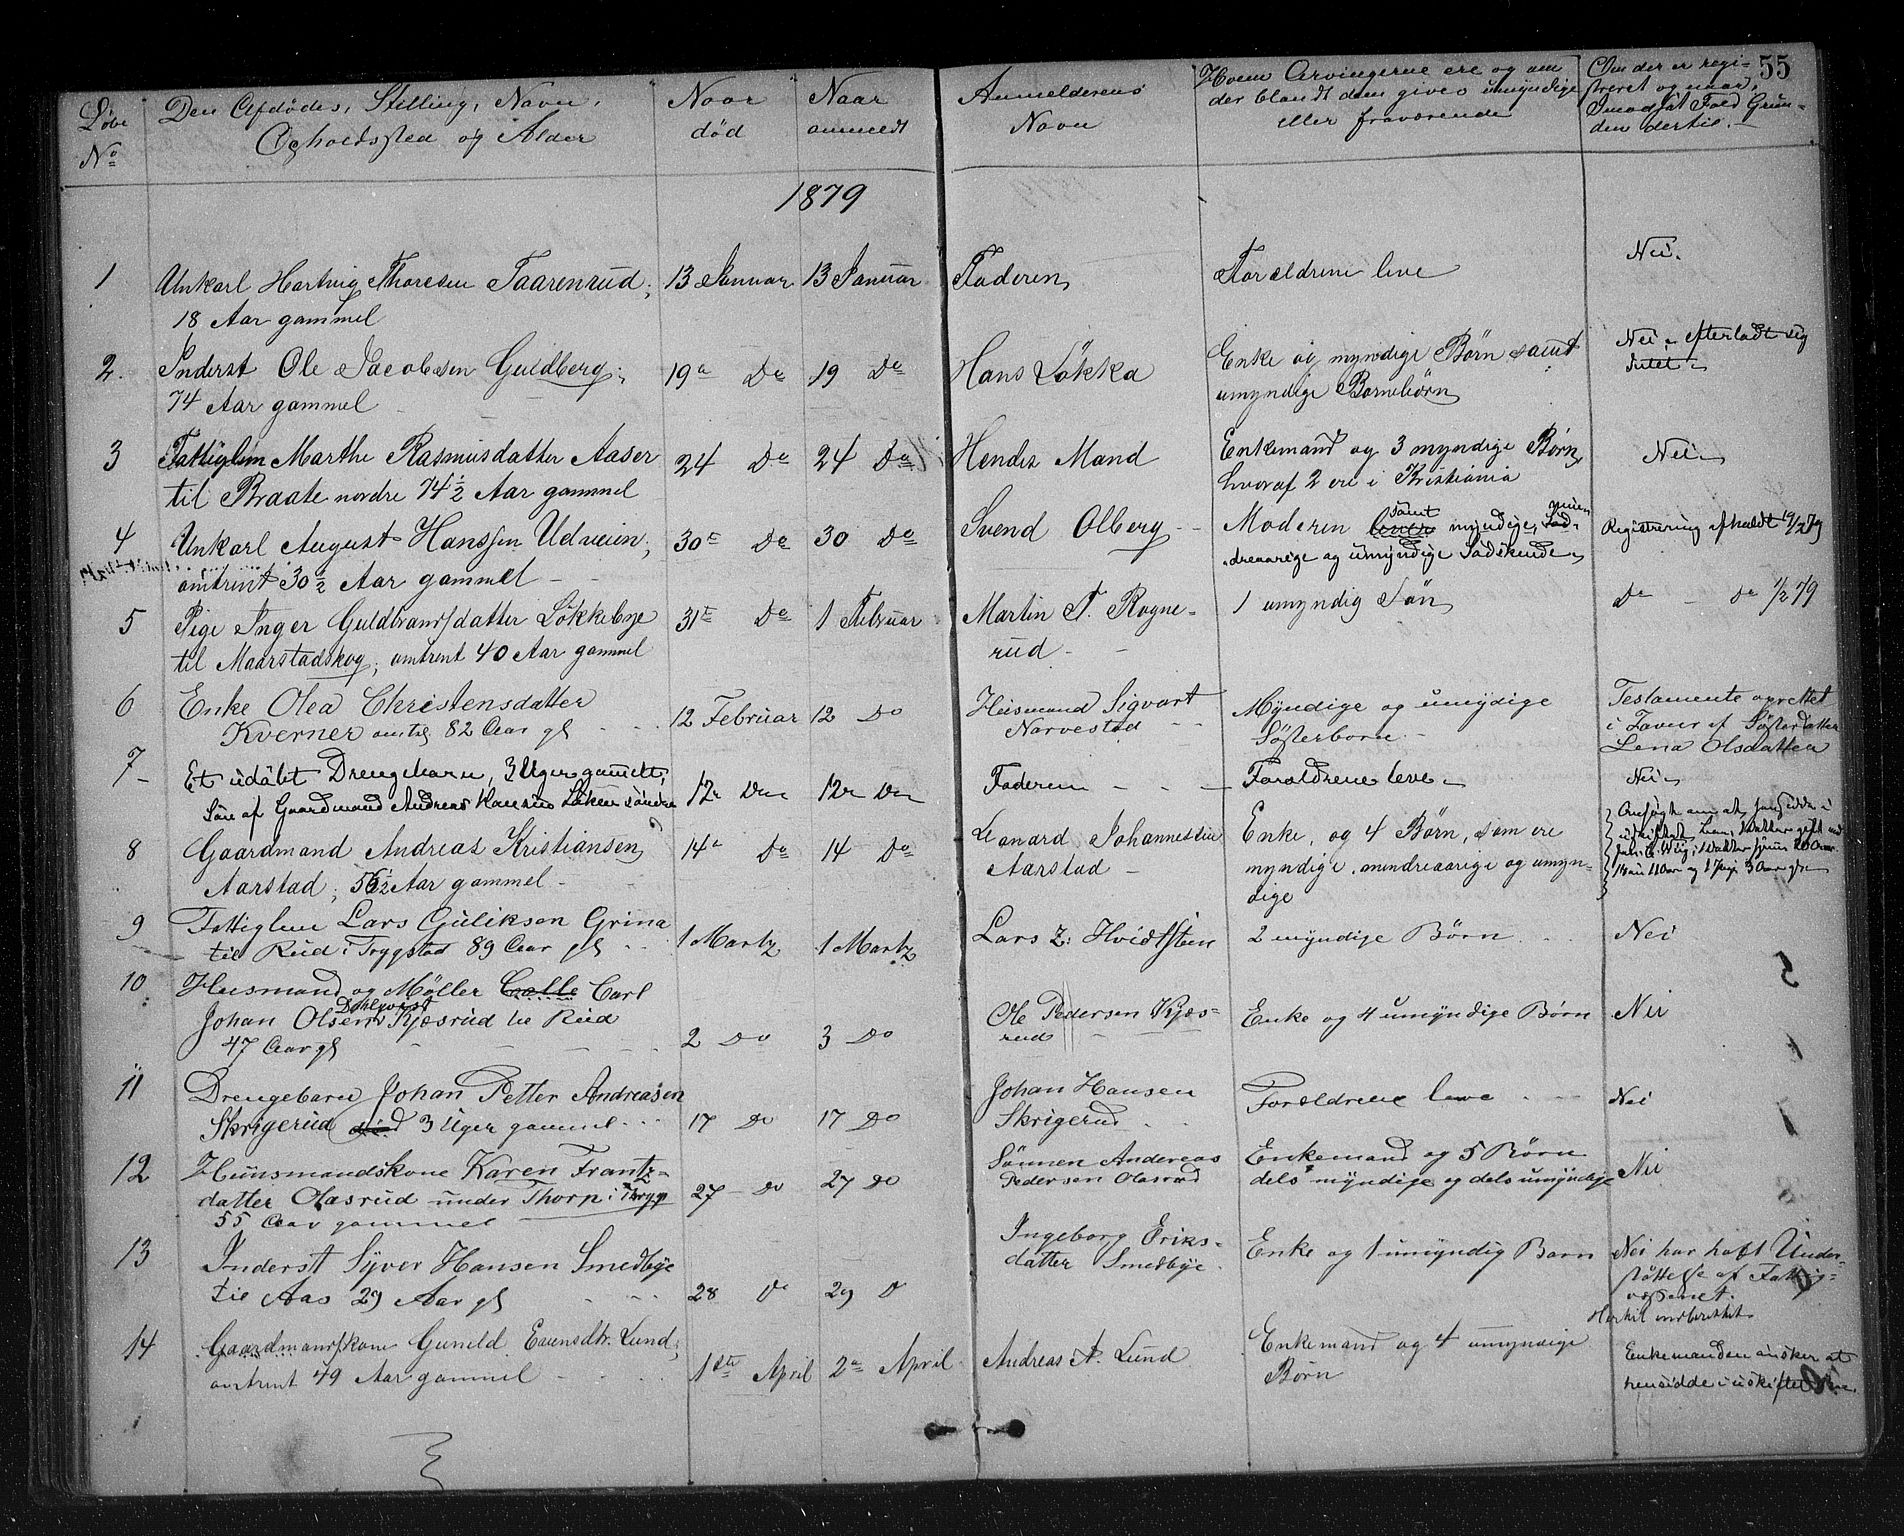 55
Løbe No
Den Afdødes, Stilling, Navn,
Opholdssted og Alder
Naar død
Naar anmeldt
Anmelderens Navn
Hvem Arvingerne ere og om
der blandt dem gives umyndige
eller fraværende
Om der er regi-
streret og naar,
I modsat Fald Grun-
den dertil.
1879
1
Unkarl Hartvig Thoresen Taarenrud,
18 Aar gammel
13 Januar
13 Januar
Faderen
Forældrene leve
Nei.
2.
Inderst Ole Jacobsen Guldberg,
74 Aar gammel
19de Do
19 Do
Hans Løkka
Enke og myndige Børn samt
umyndige Børnebørn
Nei - efterladt sig
Intet
3
Fattiglem Marthe Rasmusdatter Aaser
til Braate nordre 74 1/2 Aar gammel
24 Do
24 Do
Hendes Mand
Enkemand og 3 myndige Børn,
hvoraf 2 ere i Kristiania
Nei
4
Unkarl August Hanssen Udveien,
omtrent 30 1/2 Aar gammel
30te Do
30 Do
Svend Olberg
Moderen samt myndige, min-
dreaarige og umyndige Sødskende
Registrering afholdt 19/2 79
5
Pige Inger Guldbransdatter Løkkebye
til Maarstadskog, omtrent 40 Aar gammel
31te Do
1 Februar
Martin T. Rogne-
rud
1 umyndig Søn
Do - Do 1/2 79
6
Enke Olea Christensdatter
Kverner omtr 82 Aar gl
12 Februar
12 Do
Husmand Sigvart
Narvestad
Myndige og umydige
Søsterbørn
Testamente oprettet
i Favør af Søsterdatter
Lena Olsdatter
7
Et udøbt Drengebarn, 3 Uger gammelt,
Søn af Gaardmand Andreas Hansen Løken søndre
12te Do
12te Do
Faderen
Forældrene leve
Nei
8
Gaardmand Andreas Kristiansen
Aarstad, 56 1/2 Aar gammel
14de Do
14 Do
Leonard Johannessen
Aarstad
Enke, og 4 Børn, som ere
myndige, mindreaarige og umyn-
dige
Ansøgt om at
9
Fattiglem Lars Guliksen Grina
til Rud i Trygstad 89 Aar gl
1 Martz
1 Martz
Lars Z: Hvidtsten
2 myndige Børn
Nei
10
Husmand og Møller Calle Carl
Dahlqvist
Johan Olsen Kjæsrud til Rud
47 Aar gl
2 Do
3 Do
Ole Pedersen Kjæs-
rud
Enke og 4 umyndige Børn
Nei
11
Drengebarn Johan Petter Andreasen
Skrigerud død 3 Uger gammel
17 Do
17 Do
Johan Hansen
Skrigerud
Forældrene leve
Nei
12
Huusmandskone Karen Frantz-
datter Olasrud under Thorp i Trygst
55 Aar gammel
27 - Do
27 Do
Sønnen Andreas
Pedersen Olasrud
Enkemand og 5 Børn
dels myndige og dels umyndige
Nei
13
Inderst Syver Hansen Smedbye
til Aas 29 Aar gl
28 Do
29 D
Ingeborg Eriks-
datter Smedbye
Enke og 1 umyndig Barn
Nei har haft Under-
støttelse af Fattig-
væsenet.
Hertil indberettet
14
Gaardmandskone Gunild Evensdtr. Lund,
omtrent 49 Aar gammel
1ste April
2de April
Andreas A. Lund
Enkemand og 4 umyndige
Børn
Enkemanden ønsker at
hensidde i uskiftet Bo.